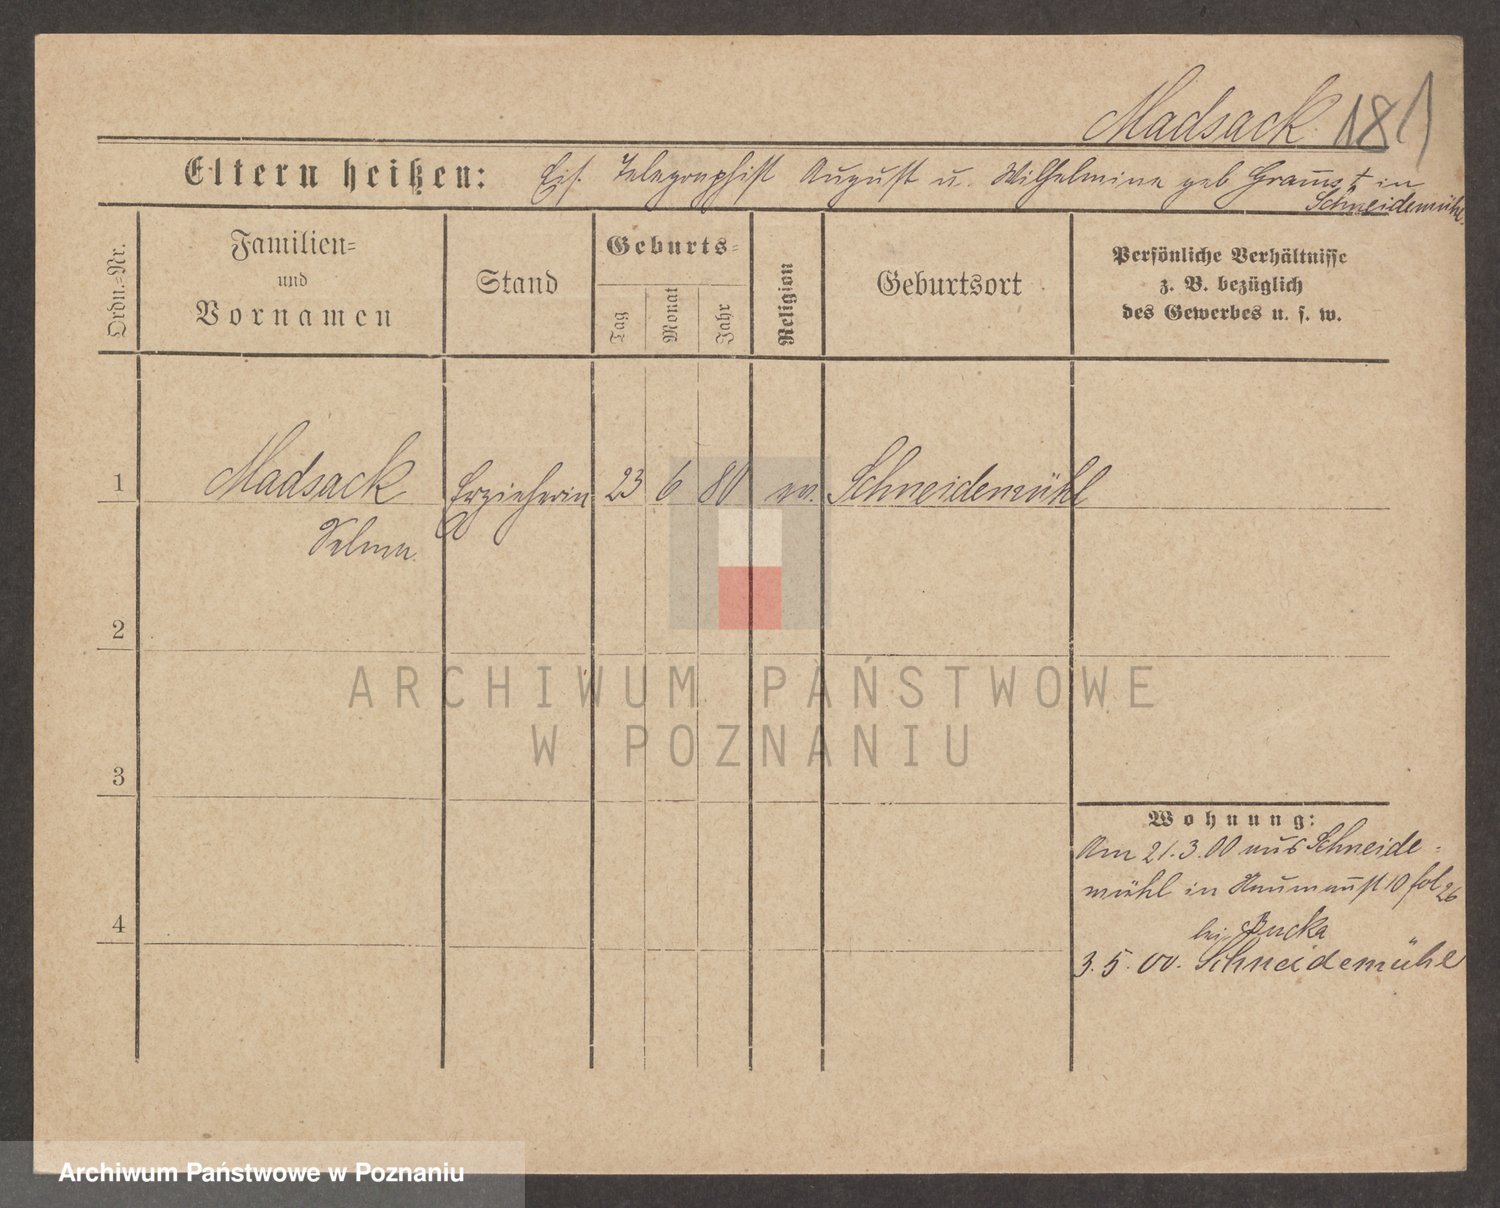 Madsack 181
Eltern heißen: Eis. Telegraphist August u. Wilhelmine geb Grams † in
Schneidemühl
Ordn.=Nr.
Familien=
und
Vornamen
Stand
Geburts=
Tag
Monat
Jahr
Religion
Geburtsort
Persönliche Verhältnisse
z. B. bezüglich
des Gewerbes u. s. w.
1 Madsack Erzieherin 23 6 80 ev. Schneidemühl
Selma
2
3
4
Wohnung:
Am 21.3.00 aus Schneide-
mühl in Naumannst 10 fol 26
bei Bucka
3.5.00. Schneidemühl
ARCHIWUM PAŃSTWOWE
W POZNANIU
Archiwum Państwowe w Poznaniu